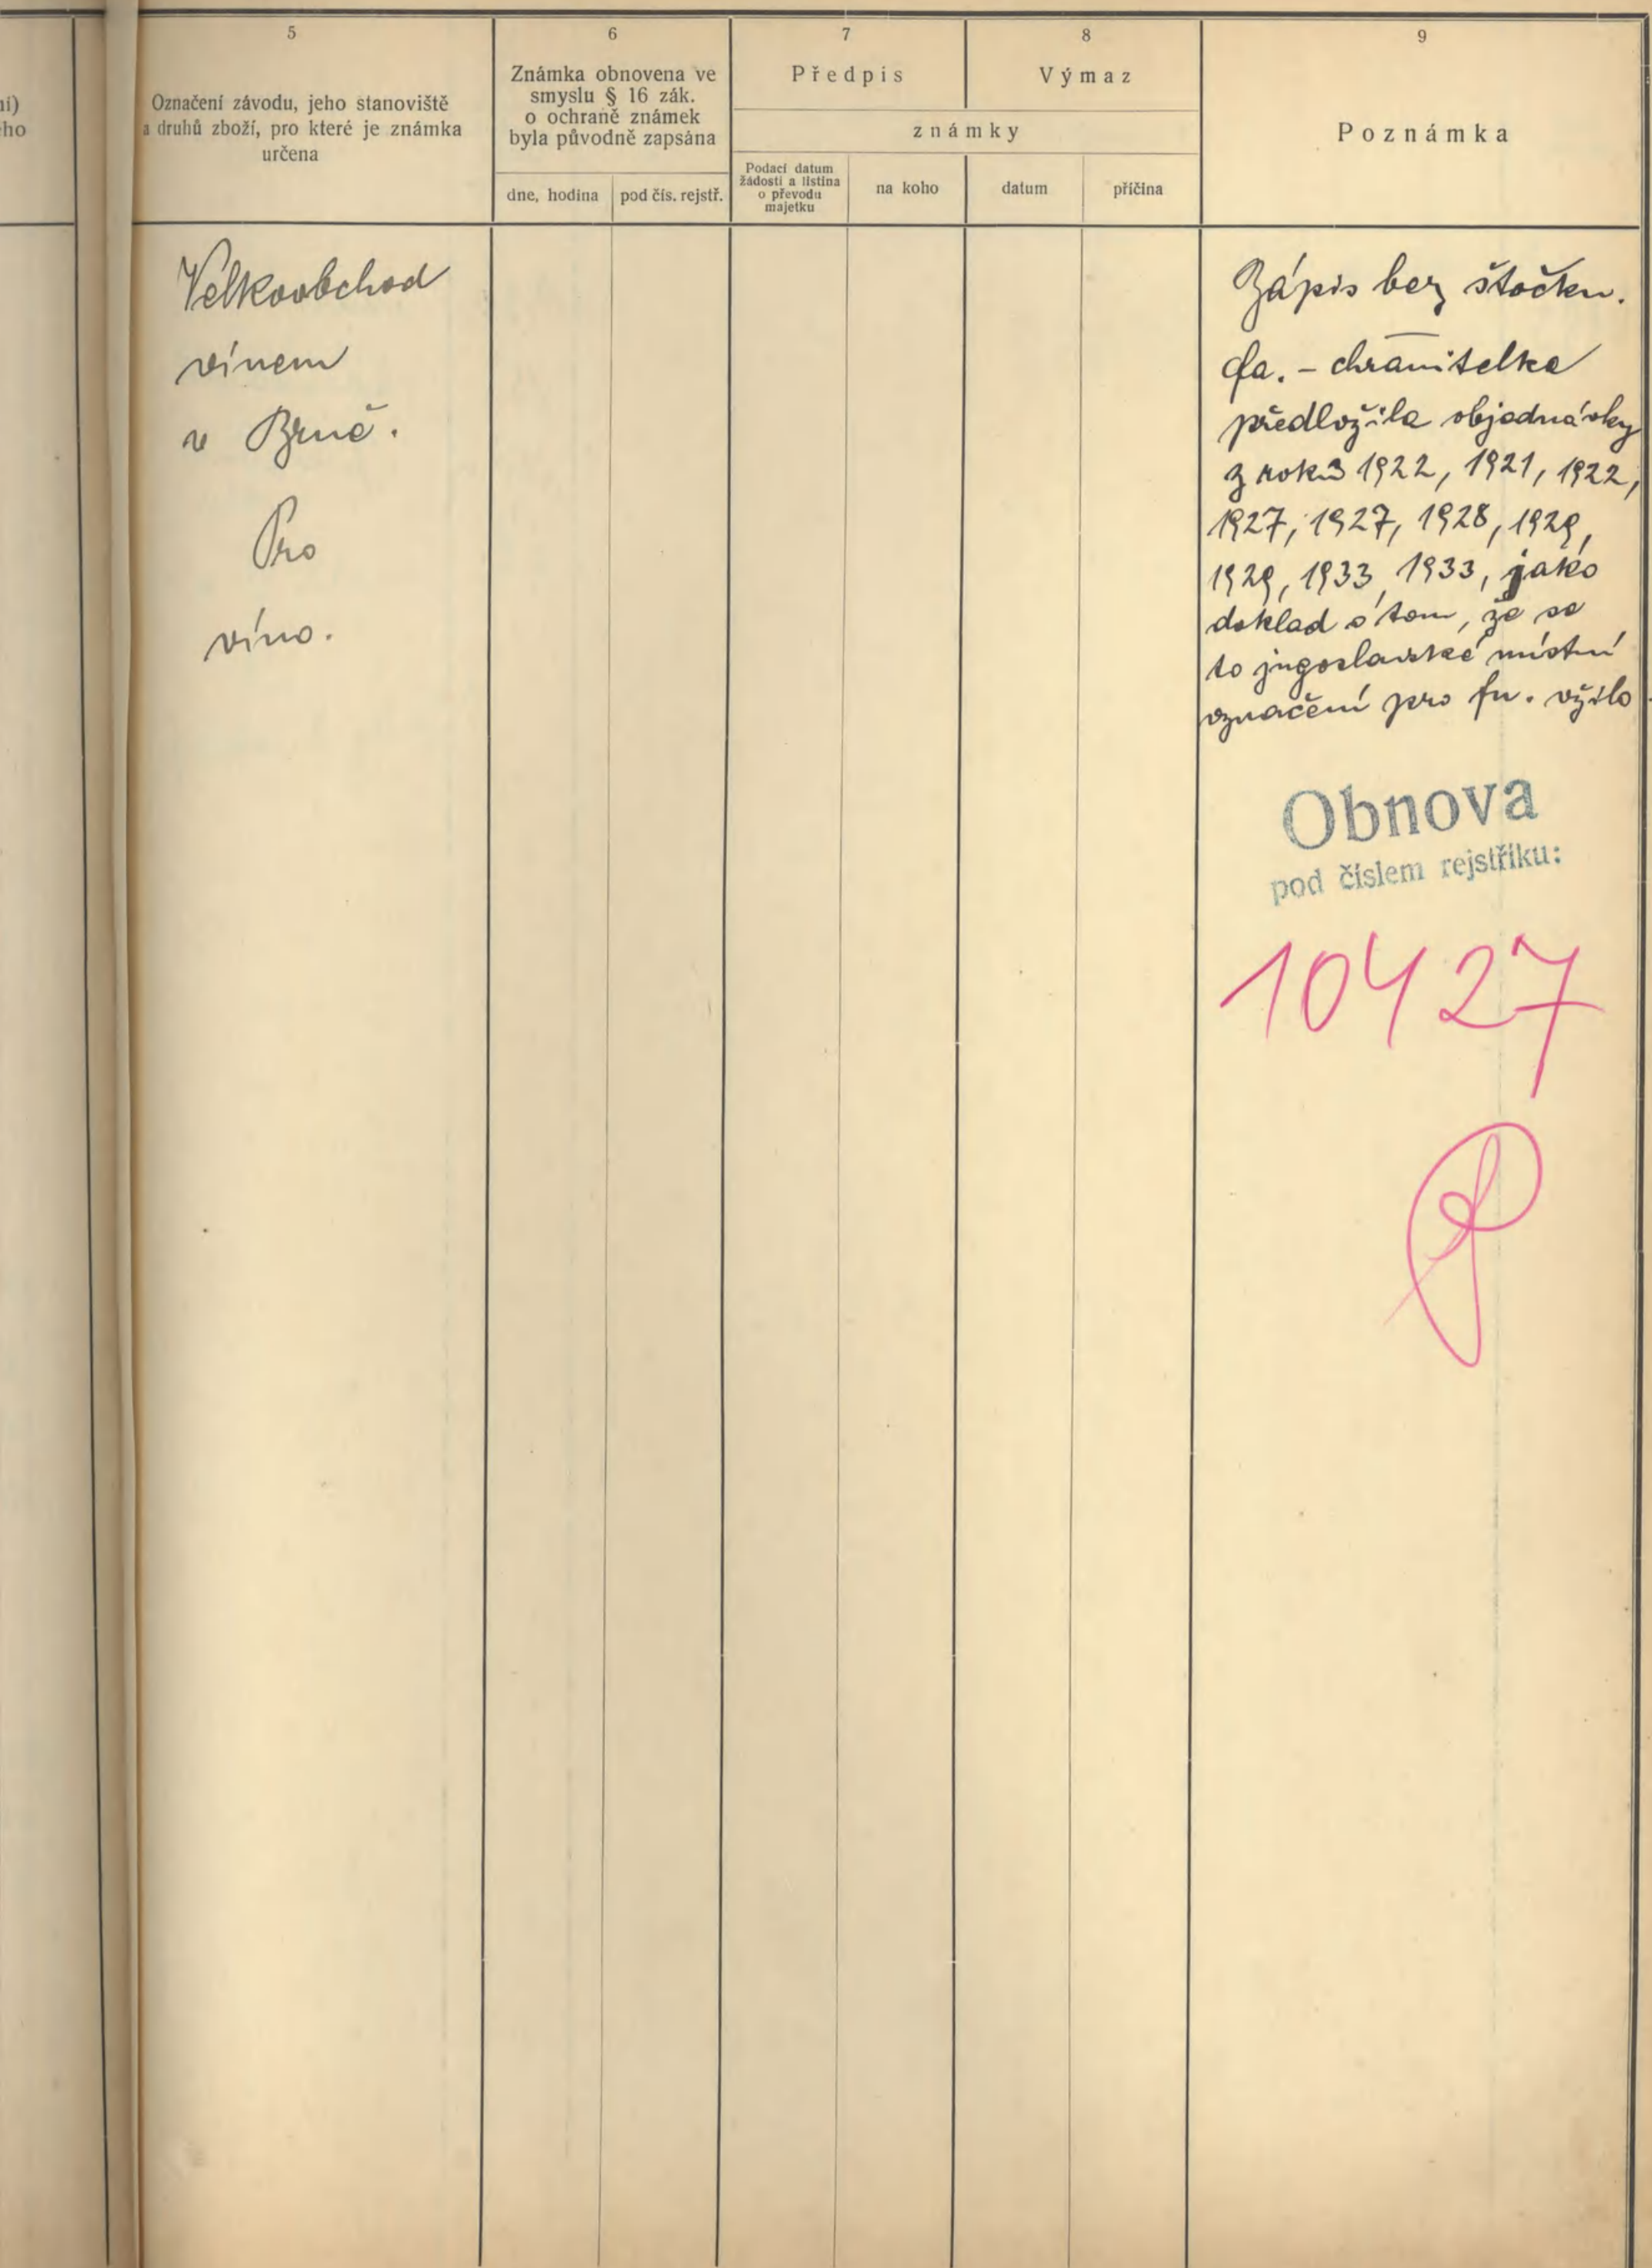 ní)
ého
5
Označení závodu, jeho stanoviště
a druhů zboží, pro které je známka
určena
6
Známka obnovena ve
smyslu § 16 zák.
o ochraně známek
byla původně zapsána
dne, hodina
pod čís. rejstř.
7
Předpis
8
Výmaz
známky
Podací datum
žádosti a listina
o převodu
majetku
na koho
datum
příčina
9
Poznámka
Velkoobchod
vínem
v Brně.
Pro
víno.
Zápis bez štočku.
Fa. - chranitelka
předložila objednávky
z roků 1922, 1921, 1922,
1927, 1927, 1928, 1929,
1929, 1933, 1933, jako
doklad o tom, že se
to jugoslavské místní
označení pro fu. vžilo.
Obnova
pod číslem rejstříku:
10427